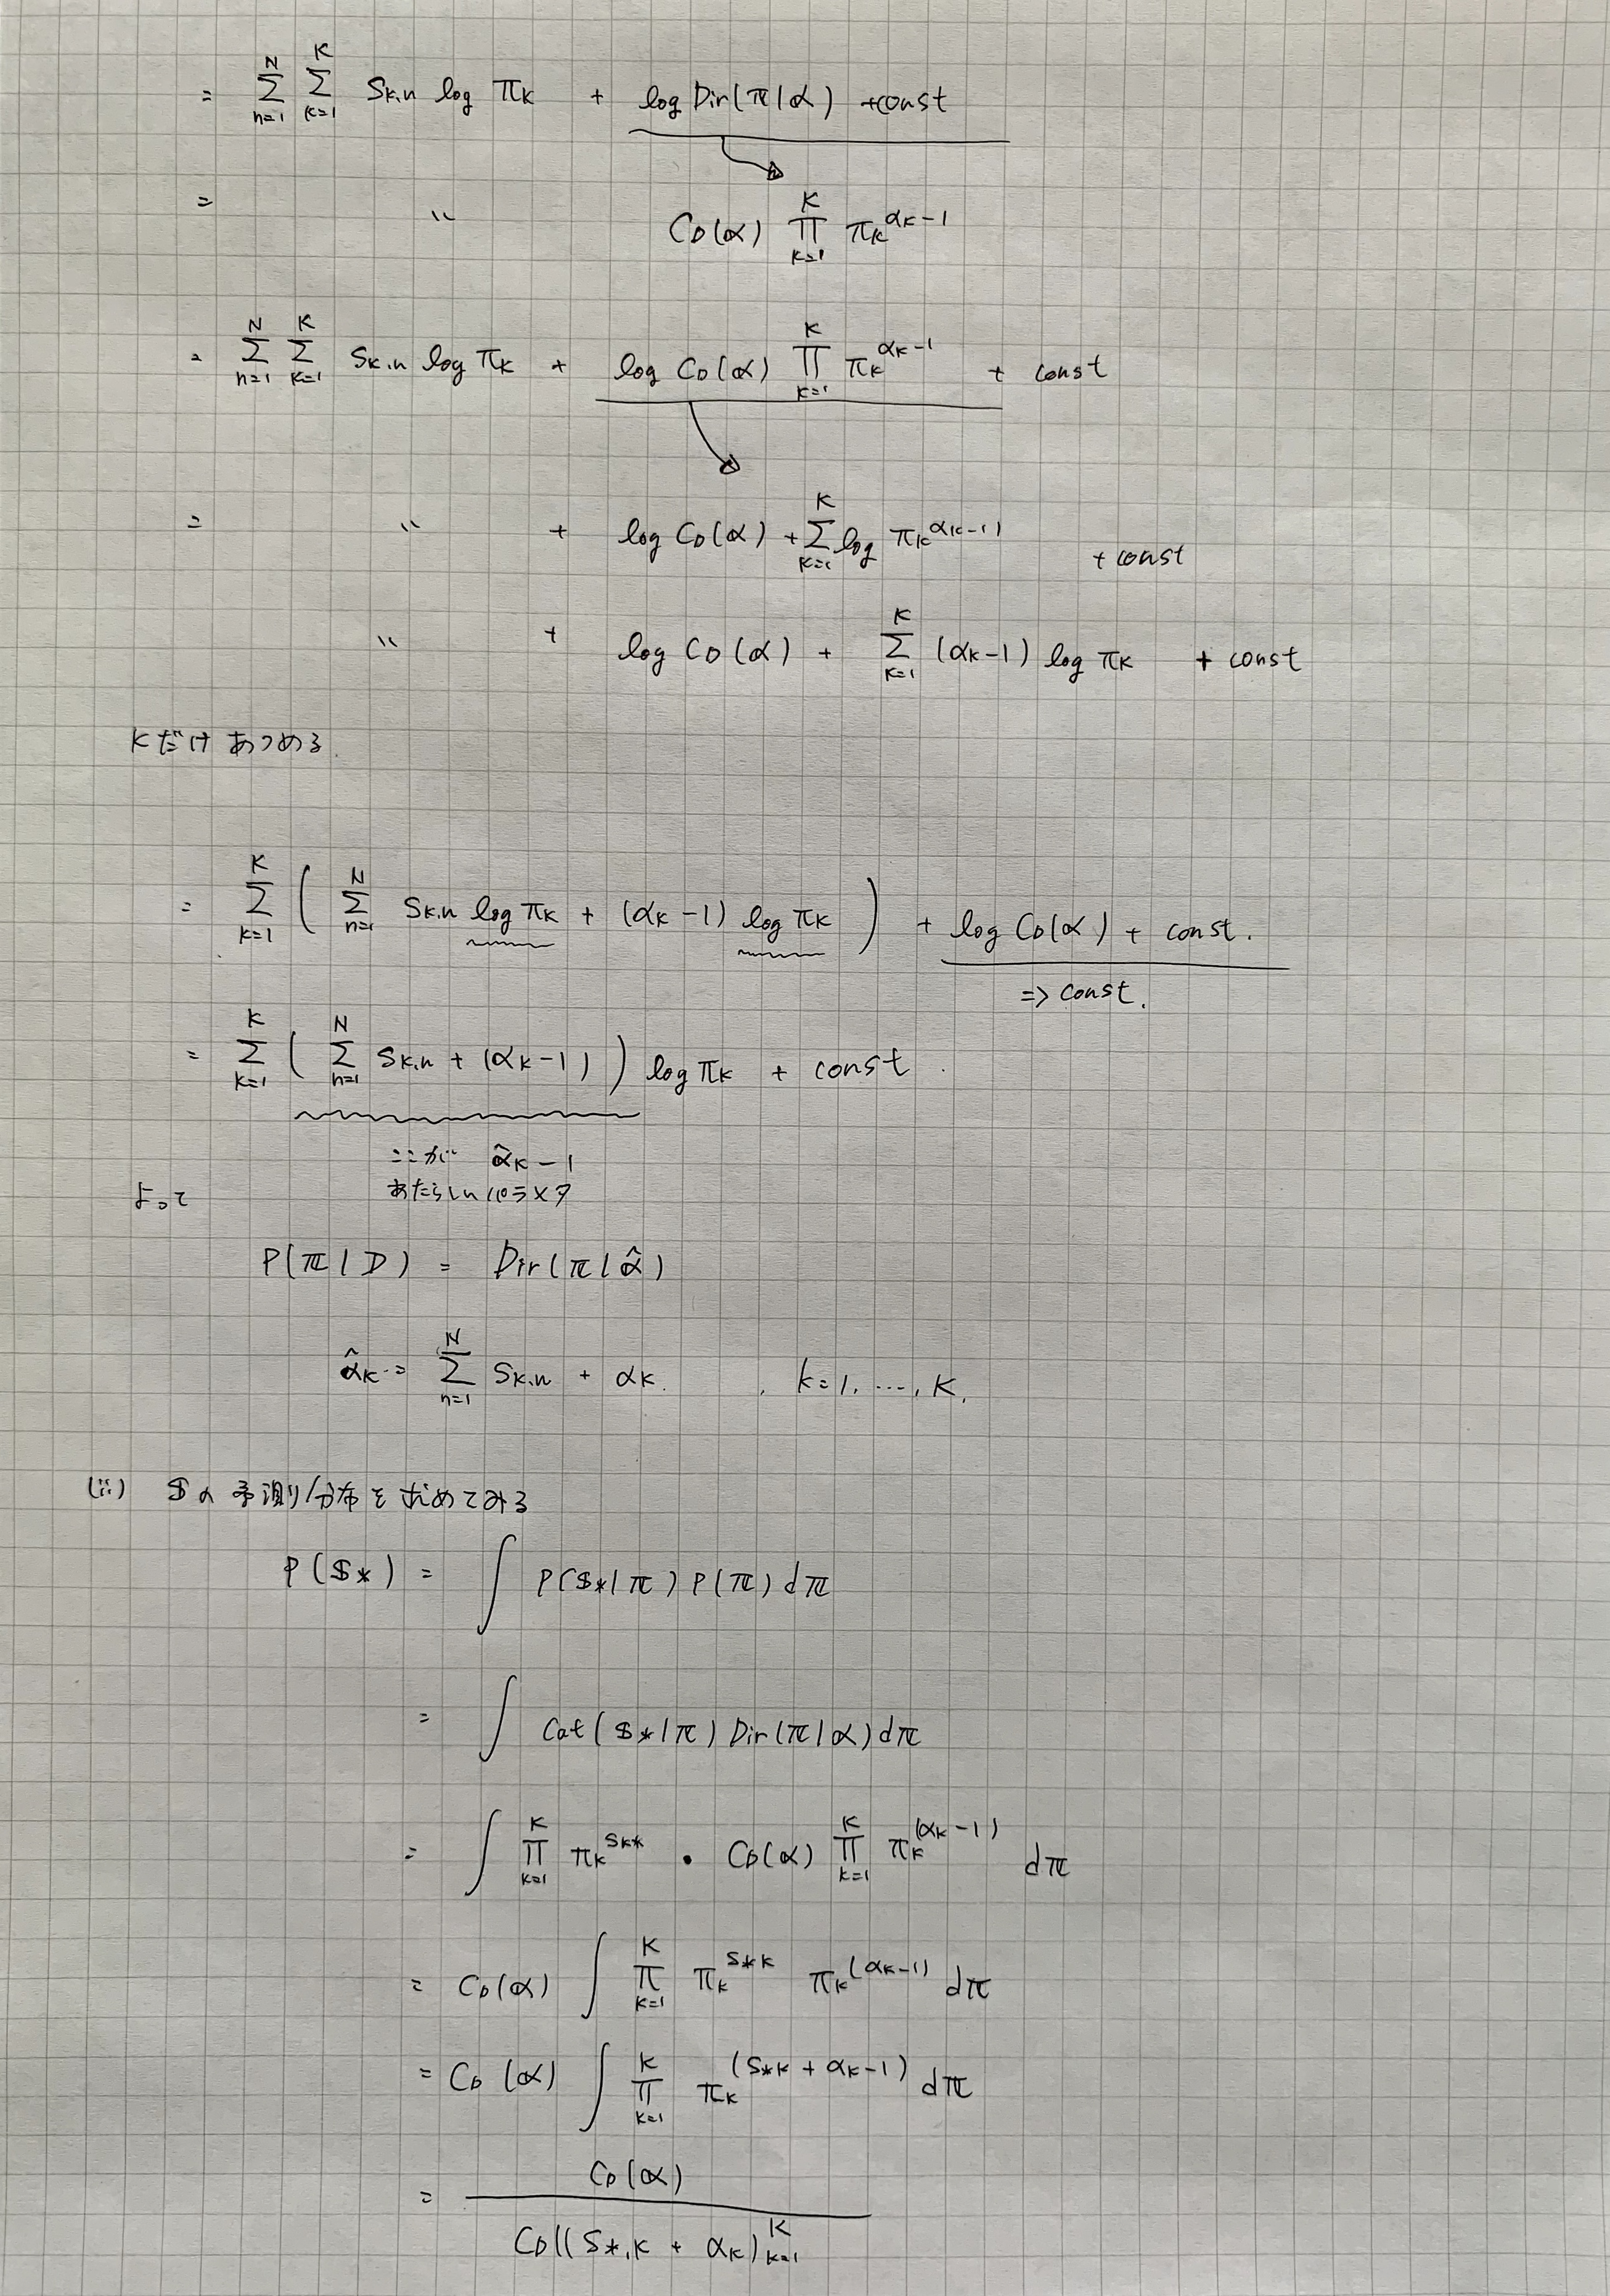 = Σ_{n=1}^{N} Σ_{k=1}^{K} S_{k,n} log π_k + log Dir(π|α) + const
= 〃 C_D(α) Π_{k=1}^{K} π_k^{α_k-1}
= Σ_{n=1}^{N} Σ_{k=1}^{K} S_{k,n} log π_k + log C_D(α) Π_{k=1}^{K} π_k^{α_k-1} + const
= 〃 + log C_D(α) + Σ_{k=1}^{K} log π_k^{α_k-1)} + const
〃 + log C_D(α) + Σ_{k=1}^{K} (α_k-1) log π_k + const
Kだけあつめる.
= Σ_{k=1}^{K} ( Σ_{n=1}^{N} S_{k,n} log π_k + (α_k-1) log π_k ) + log C_D(α) + const.
=> const.
= Σ_{k=1}^{K} ( Σ_{n=1}^{N} S_{k,n} + (α_k-1) ) log π_k + const.
ここが α̂_k-1
あたらしいパラメタ
よって
P(π|D) = Dir(π|α̂)
α̂_k = Σ_{n=1}^{N} S_{k,n} + α_k. , k=1, ..., K.
(ii) 𝕊の予測分布を求めてみる
P(𝕊*) = ∫ P(𝕊*|π) P(π) dπ
= ∫ Cat(𝕊*|π) Dir(π|α) dπ
= ∫ Π_{k=1}^{K} π_k^{S_{k*}} ・ C_D(α) Π_{k=1}^{K} π_k^{(α_k-1)} dπ
= C_D(α) ∫ Π_{k=1}^{K} π_k^{S_{*k}} π_k^{(α_k-1)} dπ
= C_D(α) ∫ Π_{k=1}^{K} π_k^{(S_{*k} + α_k-1)} dπ
= C_D(α)
C_D((S_{*,k} + α_k)_{k=1}^{K}